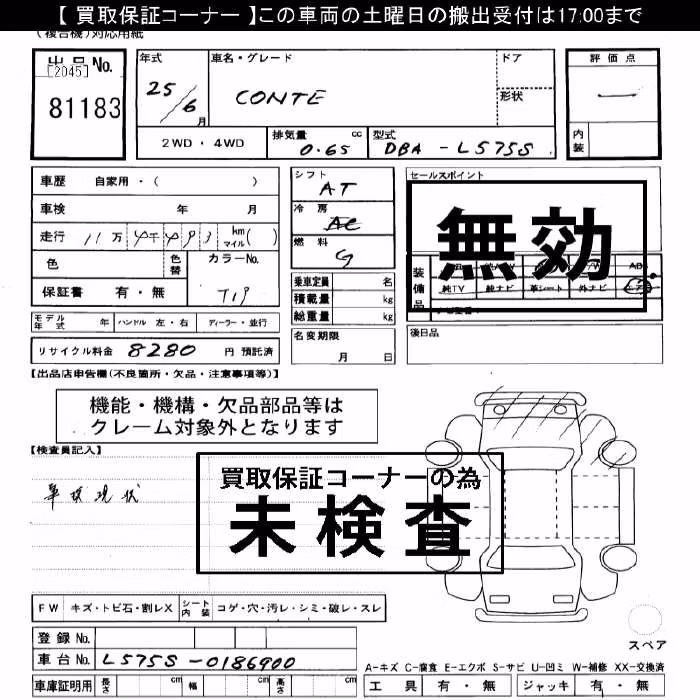 【 買取保証コーナー 】この車両の土曜日の搬出受付は17:00まで
(複合機)対応用紙
出品No.
[2045]
81183
年式
25/6月
車名・グレード
CONTE
ドア
形状
評価点
—
内装
2WD・4WD
排気量 cc
0.65
型式
DBA - L575S
車歴 自家用・( )
車検 年 月
走行 11万4千493 km マイル ( )
色 色替 カラーNo.
保証書 有・無 T19
シフト
AT
冷房
AC
燃料
G
乗車定員 名
積載量 kg
総重量 kg
名変期限
月 日
セールスポイント
無効
装備品
純TV 純ナビ 革シート 外ナビ エアB
後日品
モデル年式 年 ハンドル 左・右 ディーラー・並行
リサイクル料金 8280 円 預託済
【出品店申告欄(不良箇所・欠品・注意事項等)】
機能・機構・欠品部品等は
クレーム対象外となります
【検査員記入】
買取保証コーナーの為
未検査
現状
FW キズ・トビ石・割レX シート内装 コゲ・穴・汚レ・シミ・破レ・スレ
登録No.
車台No. L575S-0186900
車庫証明用 長さ cm 幅 cm 高さ cm
スペア
A-キズ C-腐食 E-エクボ S-サビ U-凹ミ W-補修 XX-交換済
工具 有・無 ジャッキ 有・無